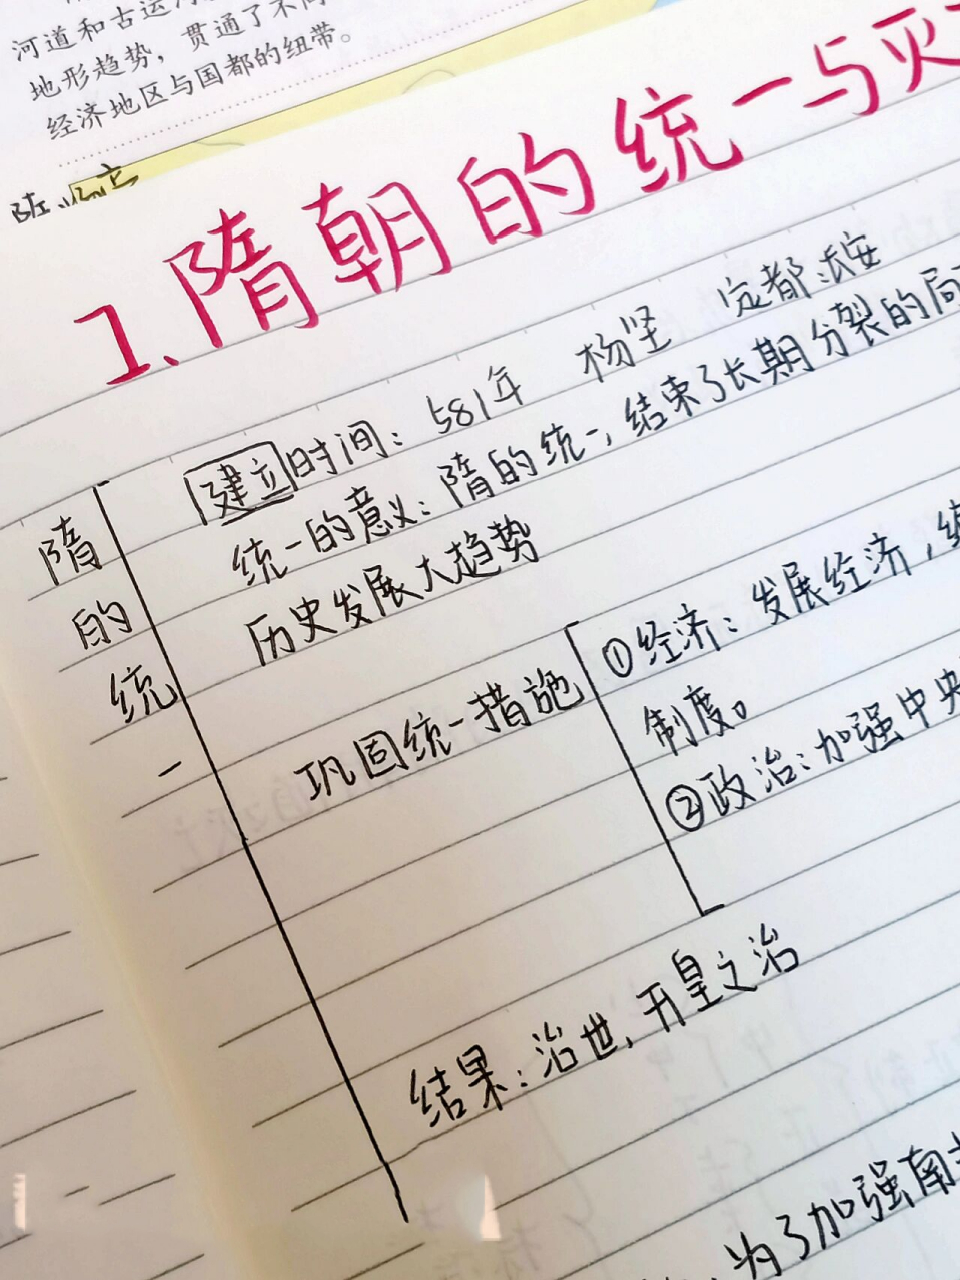 河道和古运
地形趋势，贯通了不同
经济地区与国都的纽带。
1、隋朝的统一与灭
建立时间：581年 杨坚 定都：长安
统一的意义：隋的统一，结束了长期分裂的局
历史发展大趋势
隋的统一
巩固统一措施
①经济：发展经济，编
制度。
②政治：加强中央
结果：治世，开皇之治
为了加强南